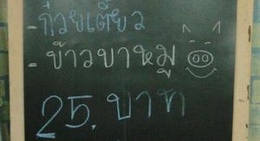 - ก๋วยเตี๋ยว
- ข้าวขาหมู
25. บาท